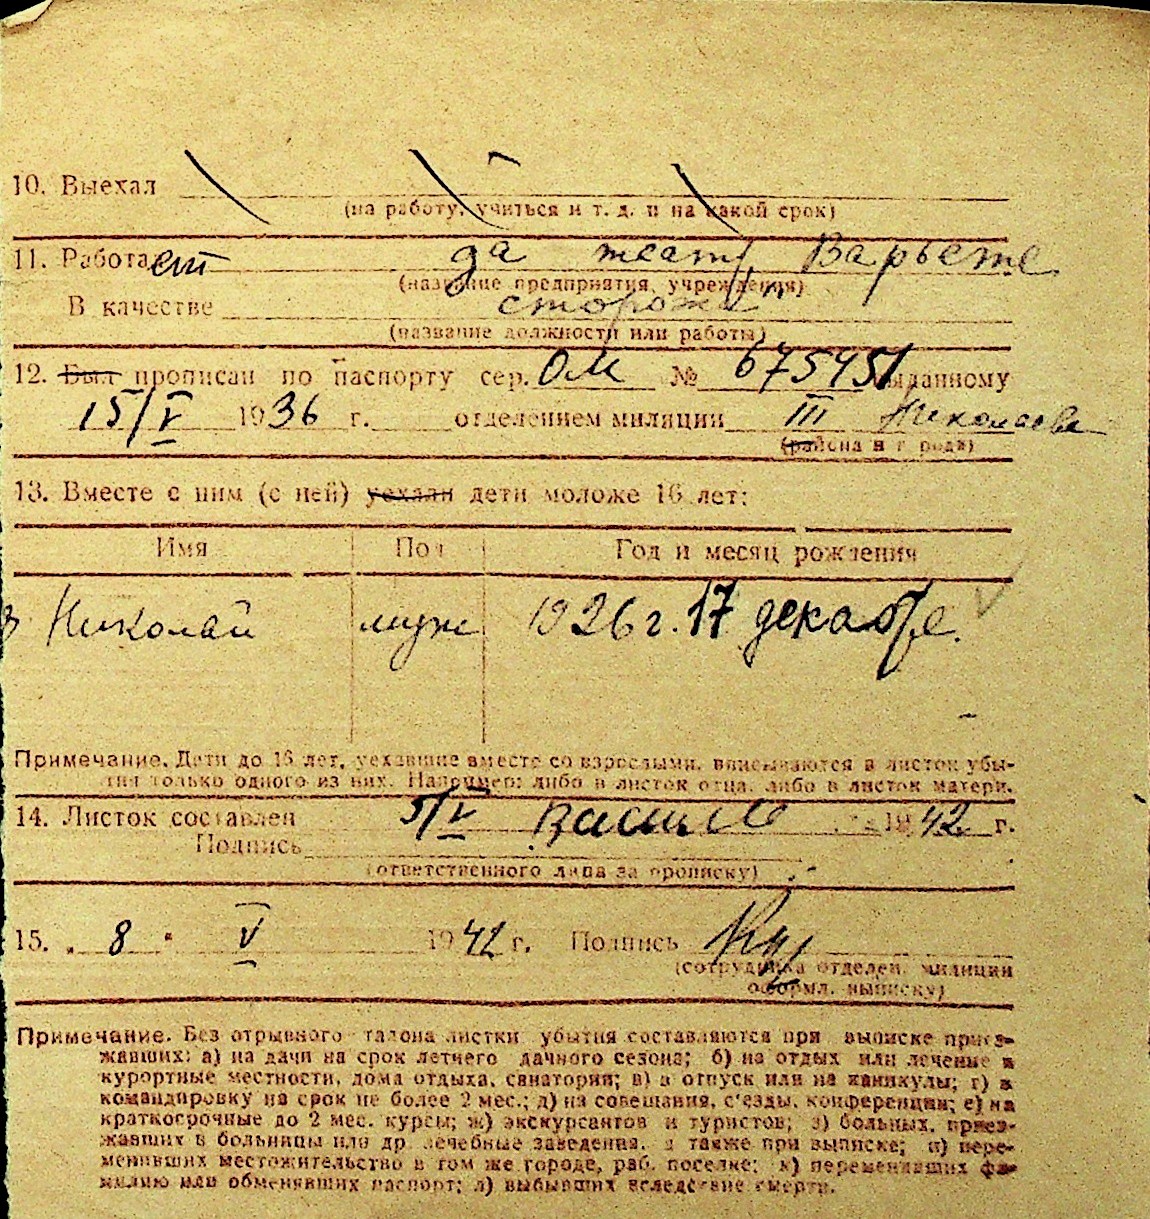 10. Выехал
(на работу, учиться и т. д. и на какой срок)
11. Работает да театр Варьете
(название предприятия, учреждения)
В качестве сторожа
(название должности или работы)
12. Был прописан по паспорту сер. ОМ № 675451 выданному
15/V 1936 г. отделением милиции III Николаева
(района и города)
13. Вместе с ним (с ней) уехали дети моложе 16 лет:
Имя Пол Год и месяц рождения
Николай муж 1926 г. 17 декабре.
Примечание. Дети до 16 лет, уехавшие вместе со взрослыми, вписываются в листок убы-
тия только одного из них. Например: либо в листок отца, либо в листок матери.
14. Листок составлен 5/V 1942 г.
Подпись
(ответственного лица за прописку)
15. „ 8 " V 1942 г. Подпись
(сотрудника отделен. милиции
оформл. выписку)
Примечание. Без отрывного талона листки убытия составляются при выписке приез-
жавших: а) на дачи на срок летнего дачного сезона; б) на отдых или лечение в
курортные местности, дома отдыха, санатории; в) в отпуск или на каникулы; г) в
командировку на срок не более 2 мес.; д) на совещания, с'езды, конференции; е) на
краткосрочные до 2 мес. курсы; ж) экскурсантов и туристов; з) больных, приез-
жавших в больницы или др. лечебные заведения, а также при выписке; и) пере-
менивших местожительство в том же городе, раб. поселке; к) переменивших фа-
милию или обменявших паспорт; л) выбывших вследствие смерти.